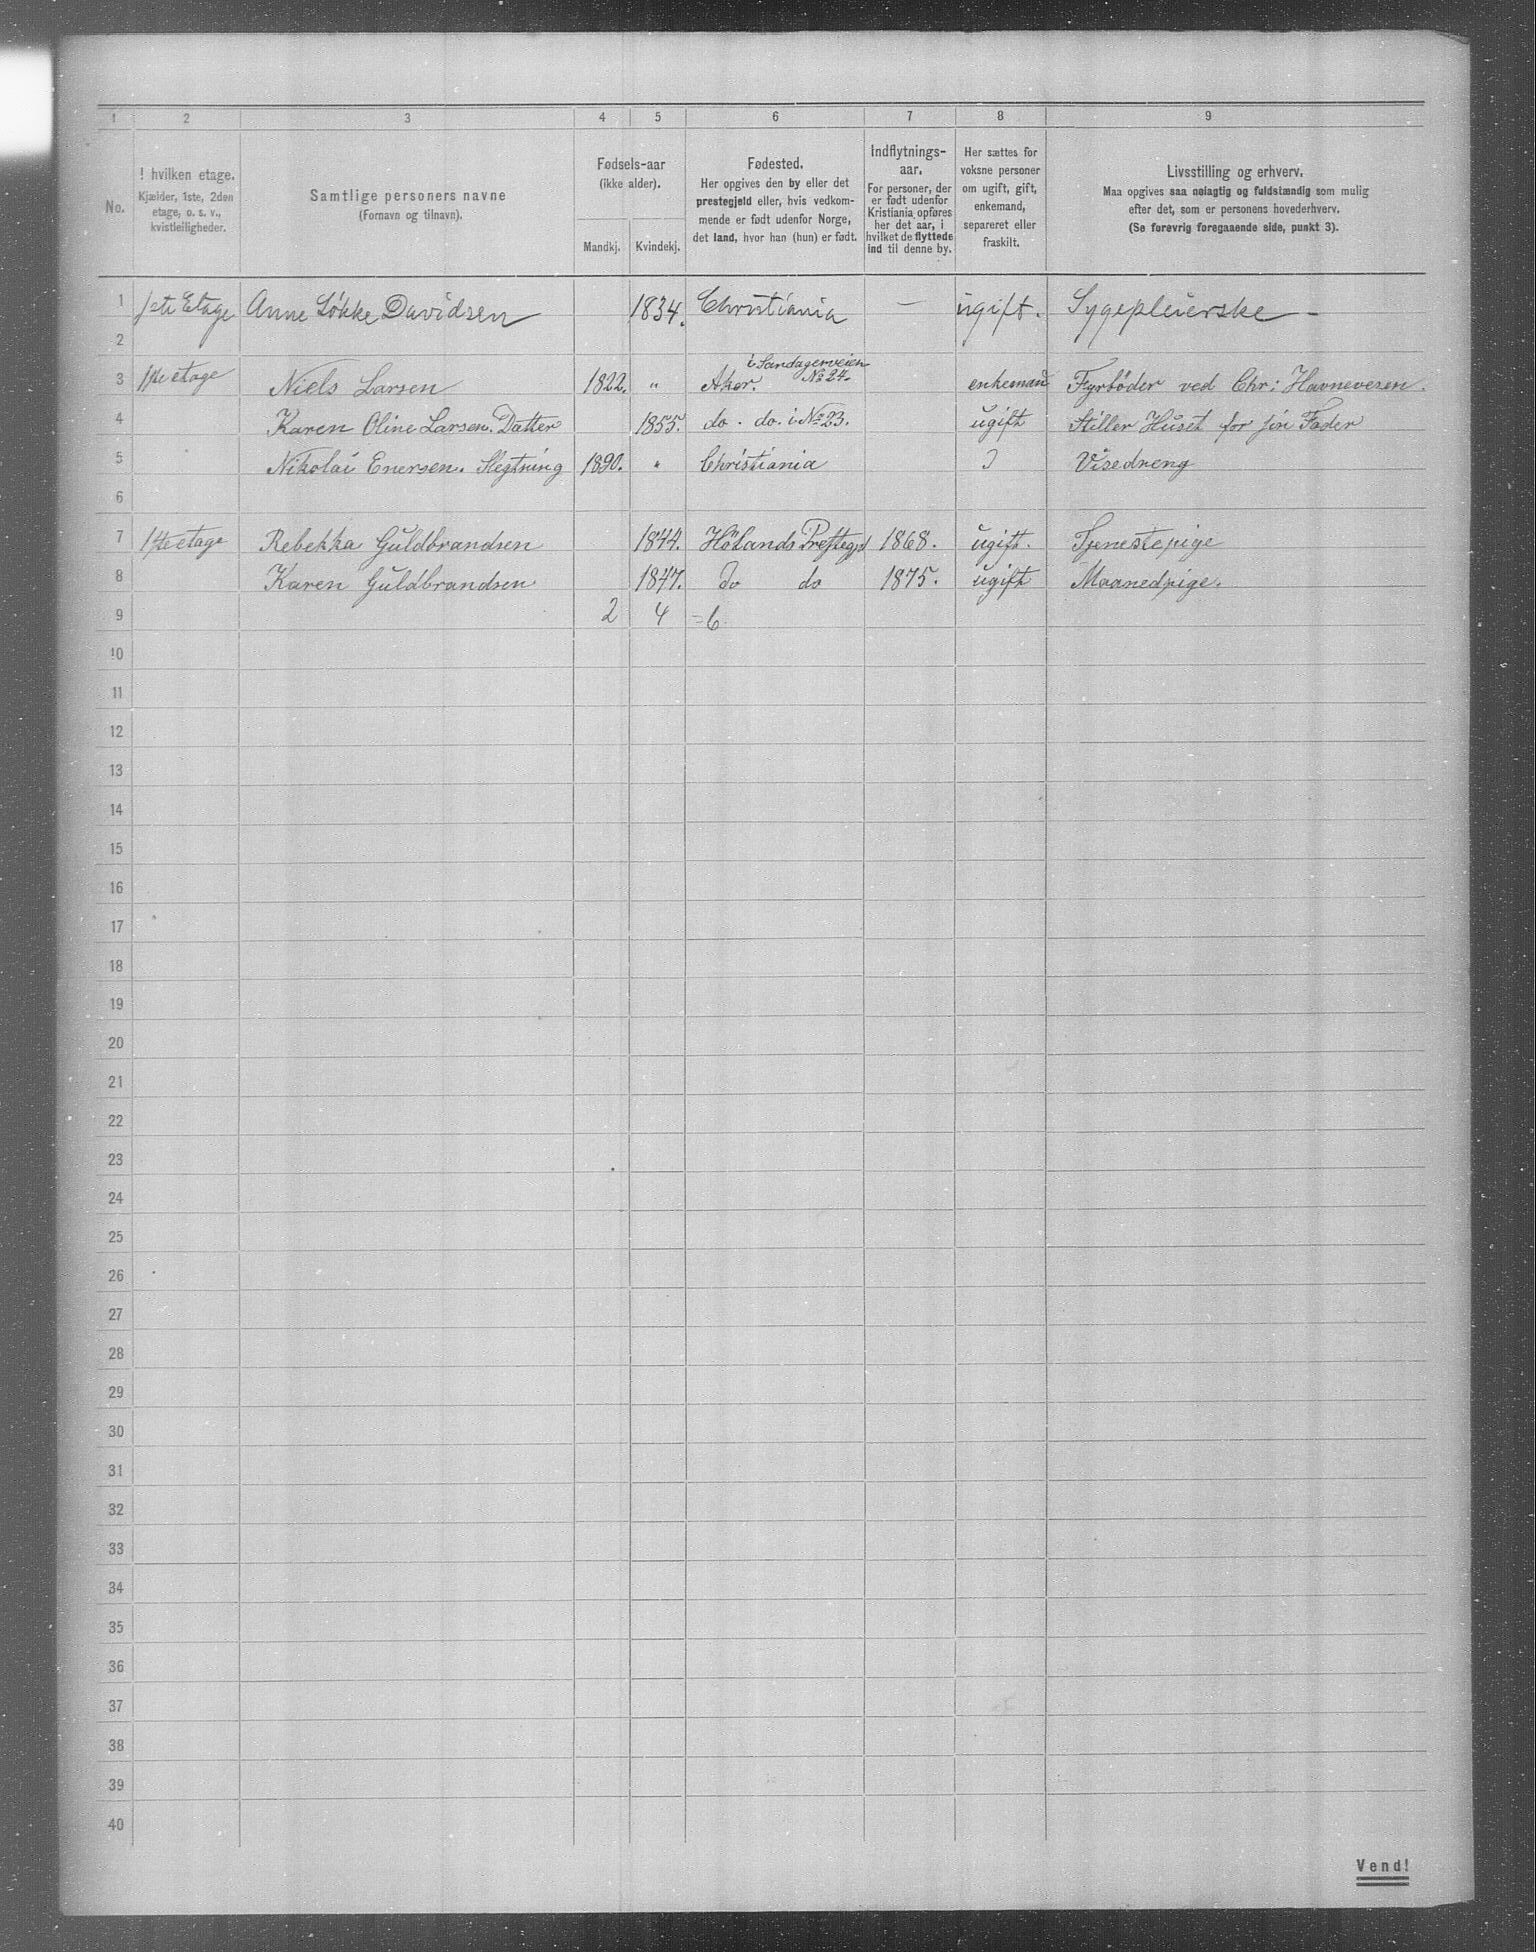 1 2 3 4 5 6 7 8 9
No.
I hvilken etage.
Kjælder, 1ste, 2den
etage, o. s. v.,
kvistleiligheder.
Samtlige personers navne
(Fornavn og tilnavn).
Fødsels-aar
(ikke alder).
Mandkj. Kvindekj.
Fødested.
Her opgives den by eller det
prestegjeld eller, hvis vedkom-
mende er født udenfor Norge,
det land, hvor han (hun) er født.
Indflytnings-
aar.
For personer, der
er født udenfor
Kristiania opføres
her det aar, i
hvilket de flyttede
ind til denne by.
Her sættes for
voksne personer
om ugift, gift,
enkemand,
separeret eller
fraskilt.
Livsstilling og erhverv.
Maa opgives saa nøiagtig og fuldstændig som mulig
efter det, som er personens hovederhverv.
(Se forøvrig foregaaende side, punkt 3).
1 1ste Etage AnneLøkke Davidsen 1834. Christiania — ugift. Sygepleierske –
2
i Sandagerveien
3 1ste etage Niels Larsen 1822. " Aker. No 24. enkemand Fyrbøder ved Chr: Havnevesen.
4 Karen Oline Larsen. Datter 1855. do. do. i No 23. ugift Stiller Huset for sin Fader
5 Nikolai Enersen. Slegtning 1890. " Christiania Visedreng
6
7 1ste etage Rebekka Guldbrandsen 1844. Hölands Prestegjd 1868. ugift. Tjenestepige
8 Karen Guldbrandsen 1847. Do do 1875. ugift Maanedspige.
9 2 4 =6
10
11
12
13
14
15
16
17
18
19
20
21
22
23
24
25
26
27
28
29
30
31
32
33
34
35
36
37
38
39
40
Vend!